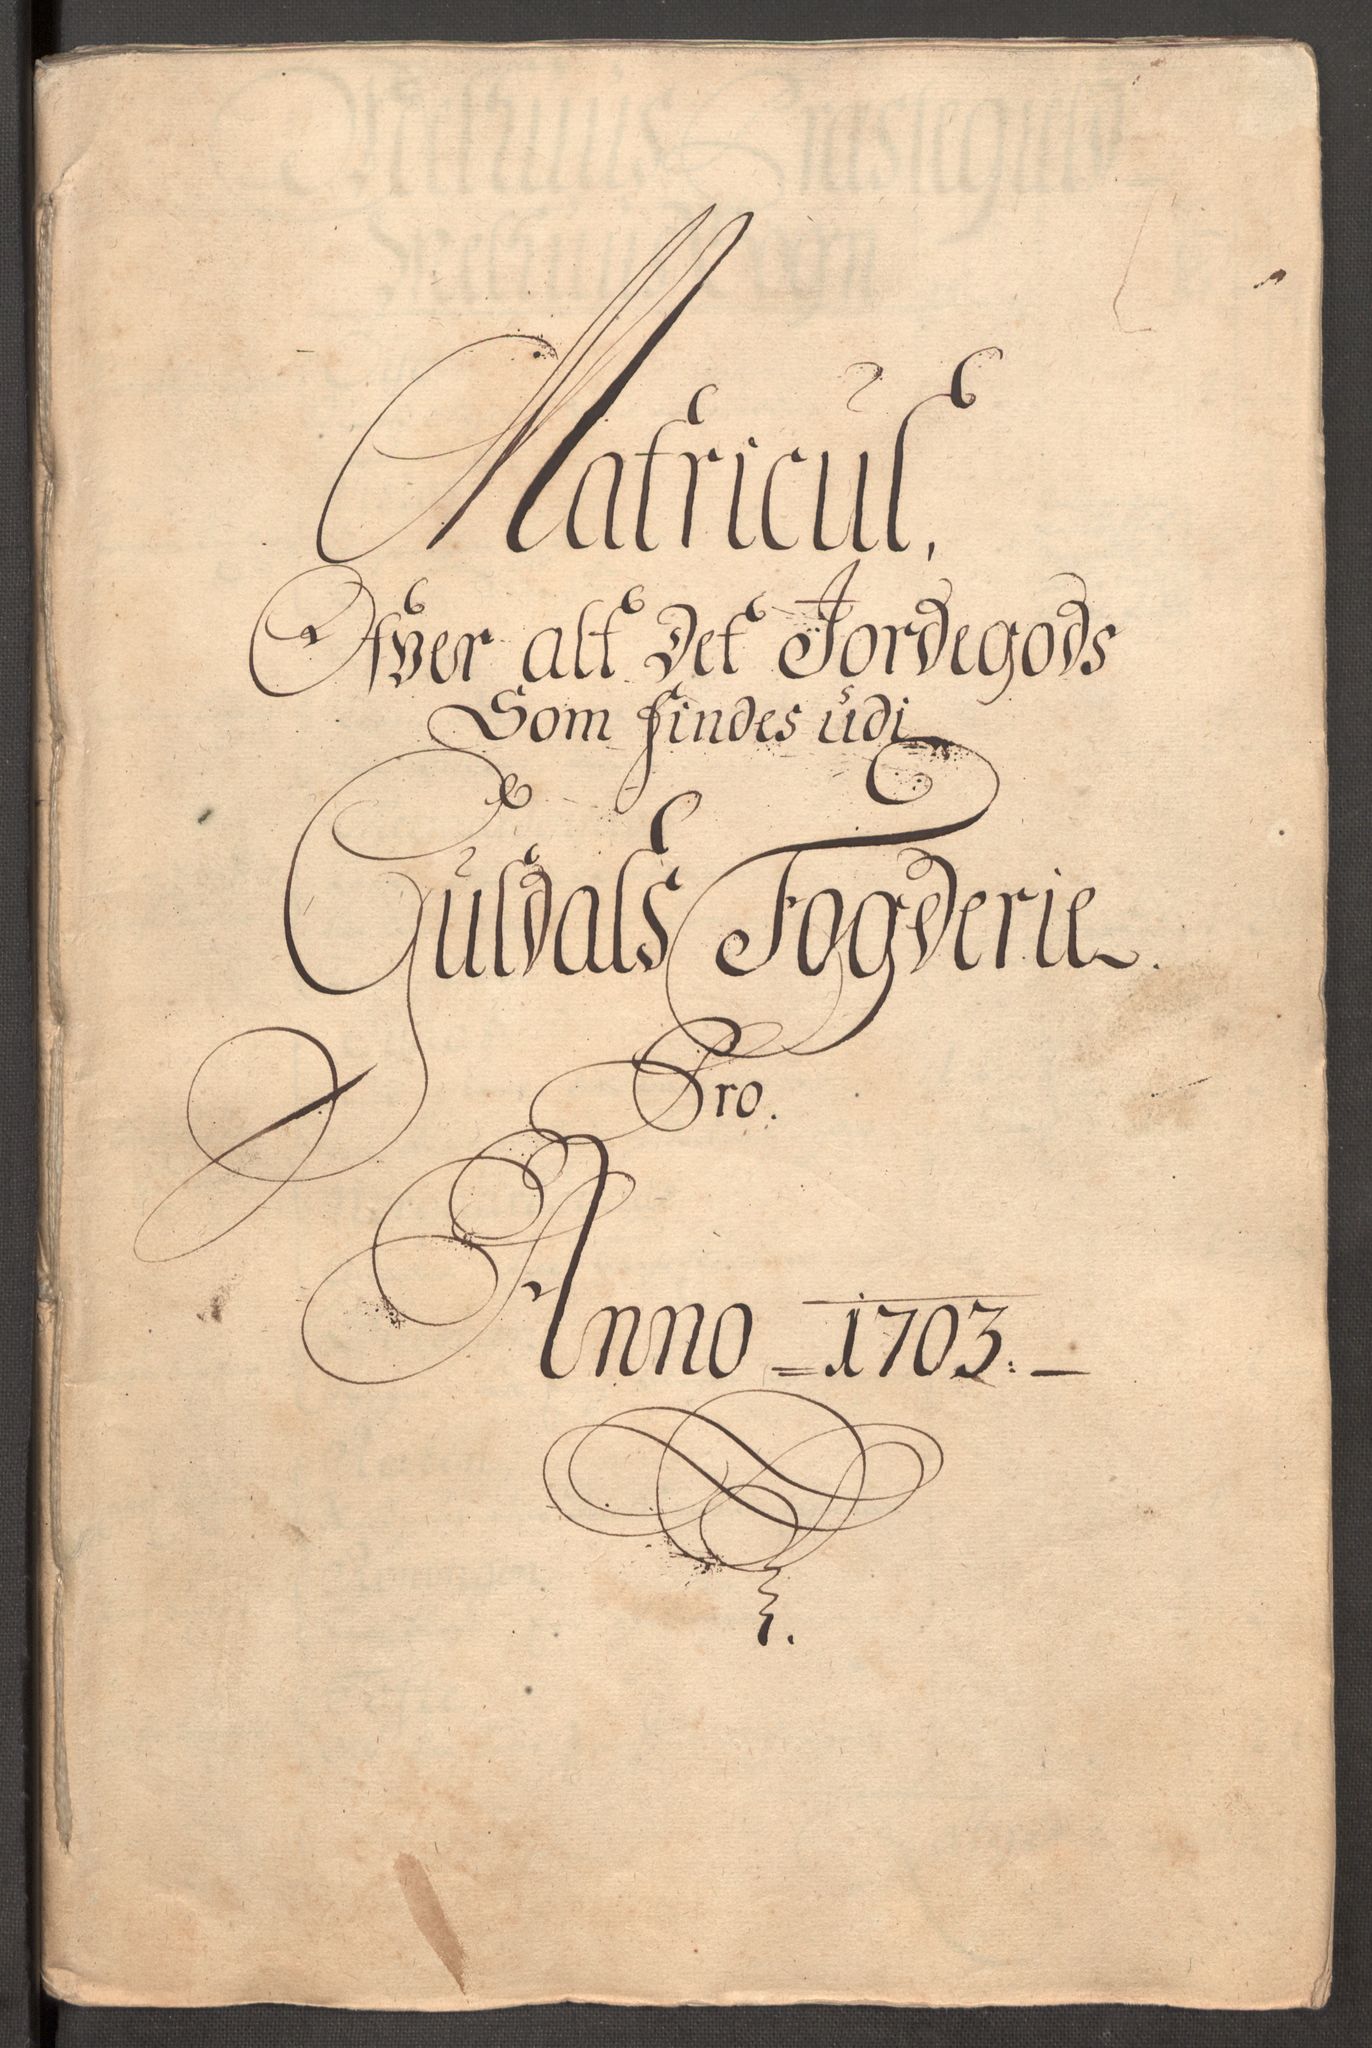 Matricul,
Ofver alt det Jordegods
Som findes udi
Guldals Fogderie.
Pro.
Anno = 1703. —